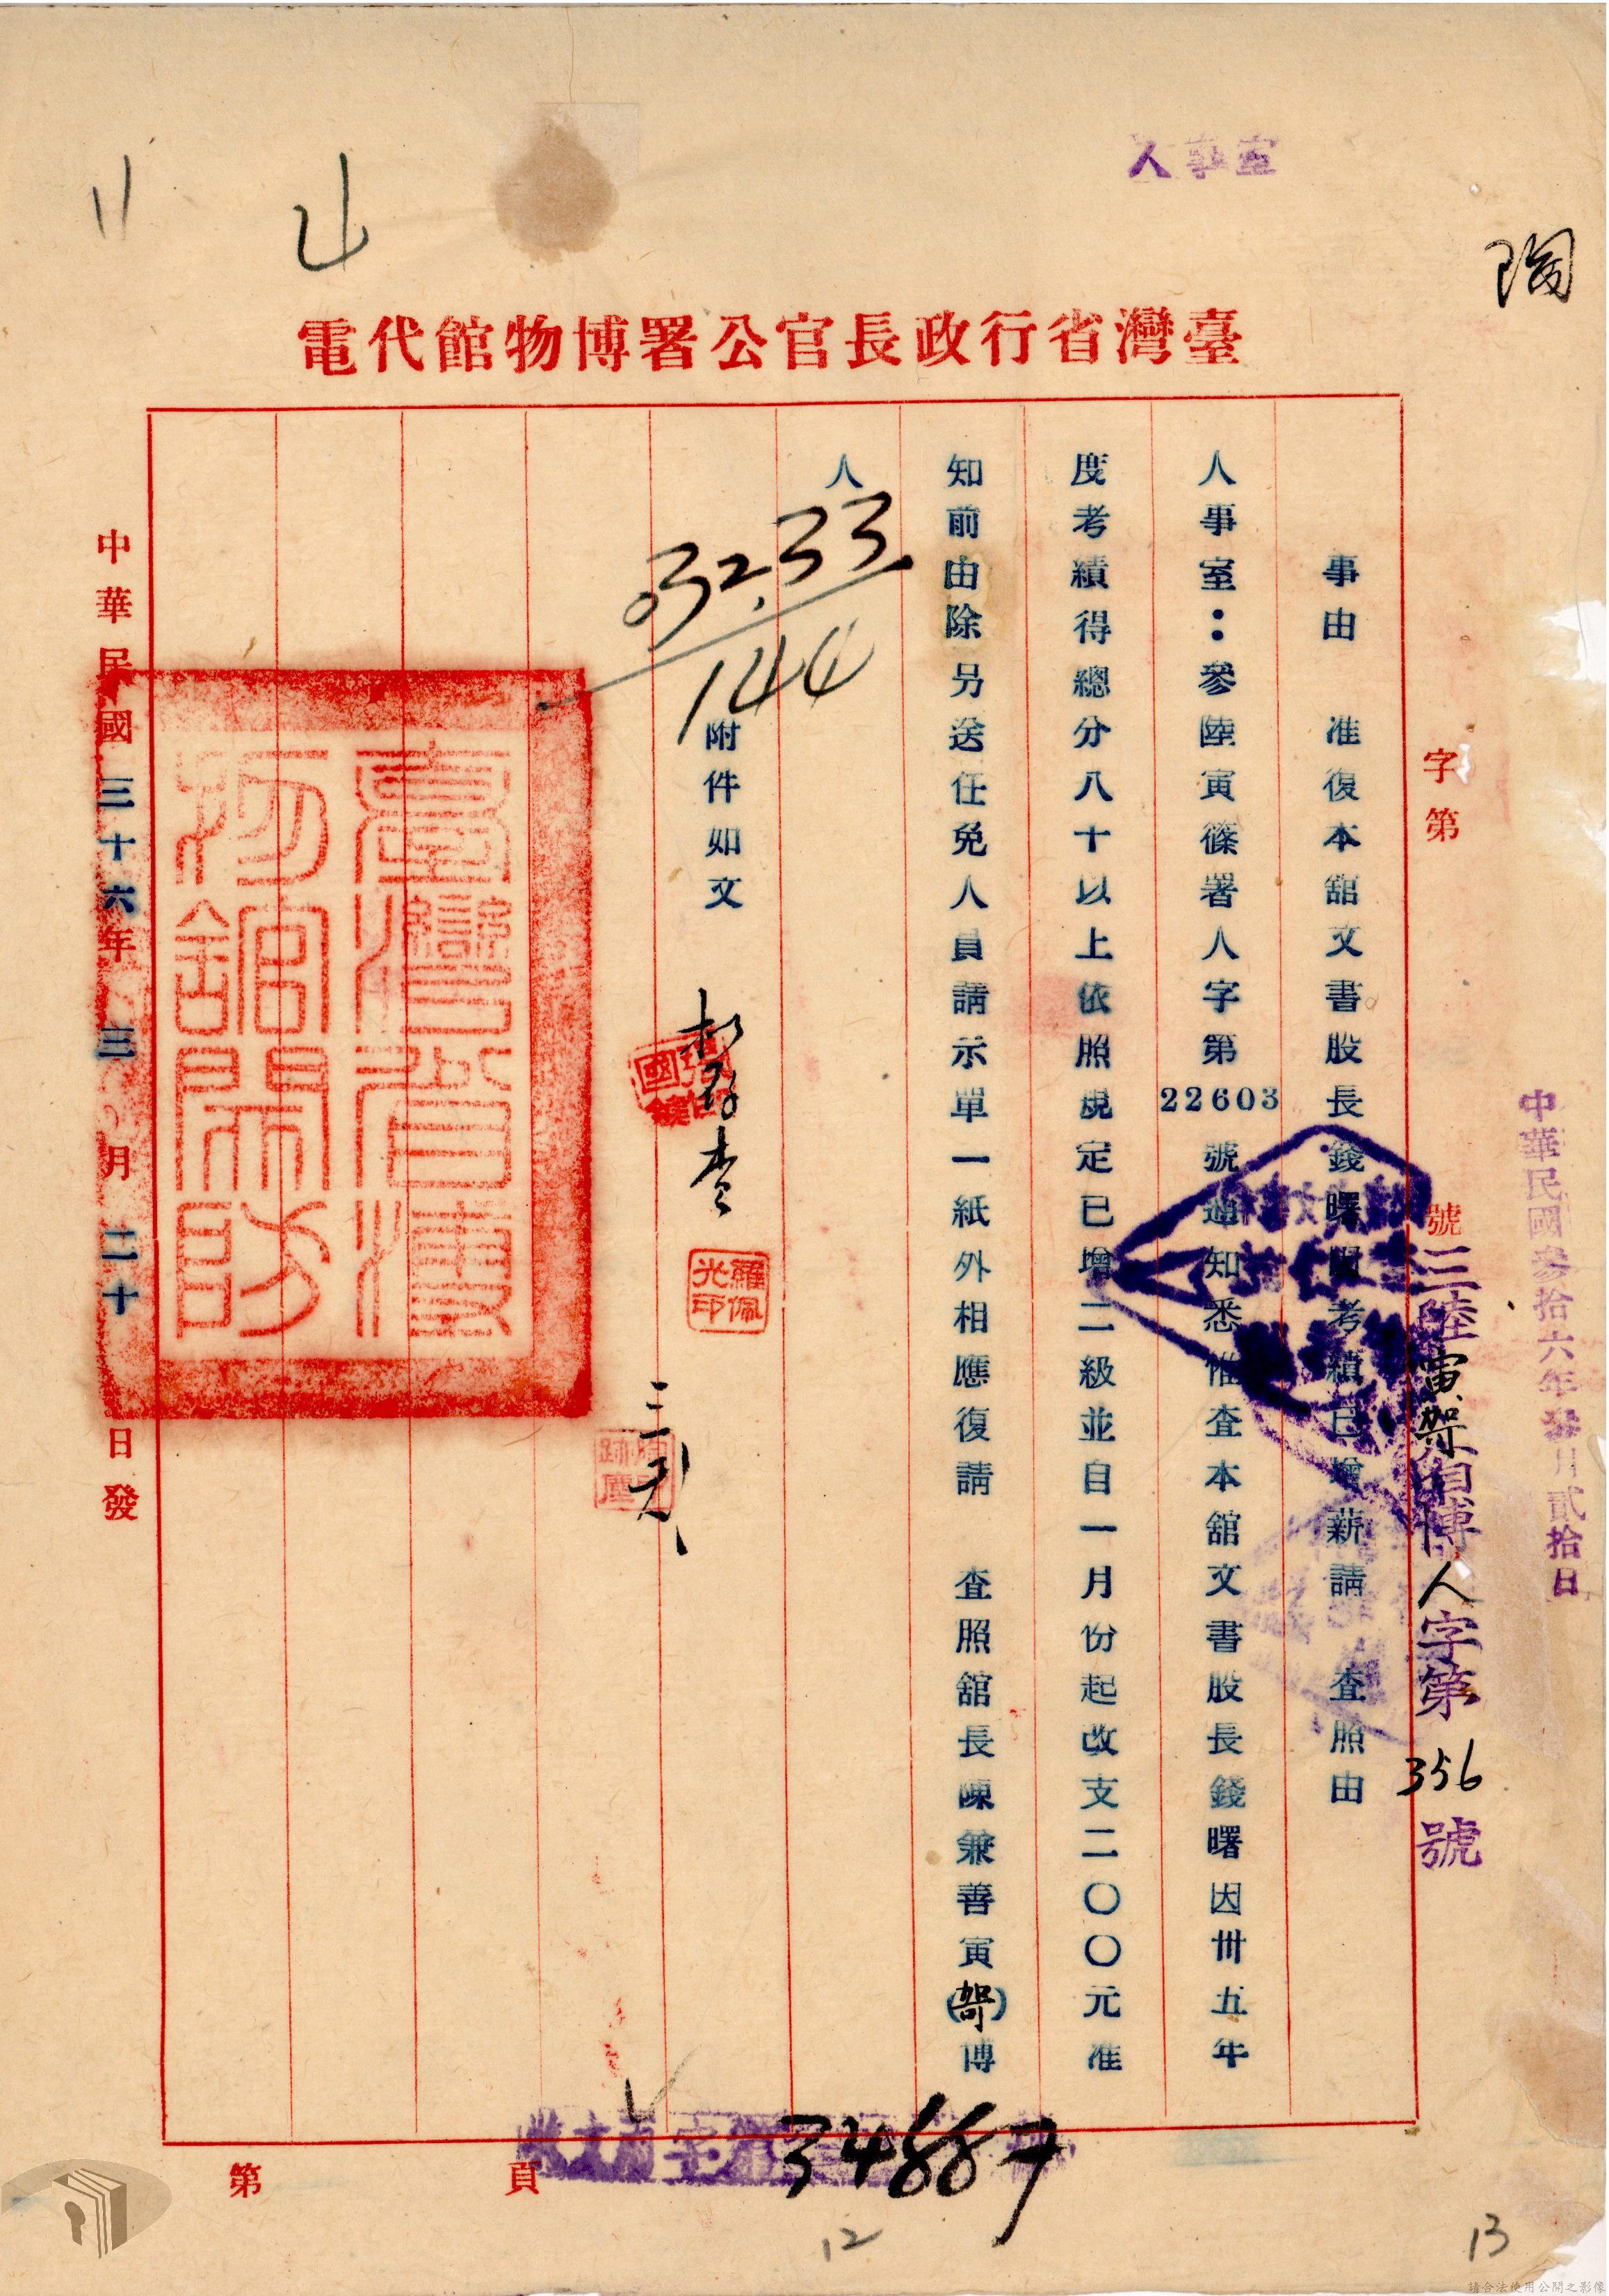 人事室
陶
臺灣省行政長官公署博物館代電
中華民國參拾六年參月貳拾日
字第 號
三陸寅 博人字第356號
事由 准復本舘文書股長錢曙因考績已增薪請 查照由
人事室：參陸寅篠署人字第22603號通知悉惟查本舘文書股長錢曙因卅五年
度考績得總分八十以上依照規定已增二級並自一月份起改支二〇〇元准
知前由除另送任免人員請示單一紙外相應復請 查照舘長陳兼善寅( )博
人
03233
144
附件如文
羅佩光印
三
臺灣省博物館關防
中華民國三十六年三月二十日發
第 頁
34887
12
13
請合法使用公開之影像